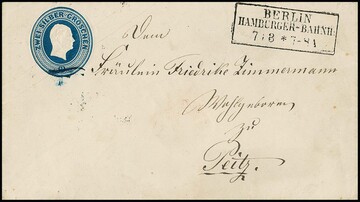 ZWEI SILBER-GROSCHEN
BERLIN
HAMBURGER-BAHNH:
7 8 * 7-8
Dem
Fräulein Friedrike Zimmermann
Wohlgeboren
zu
Peitz.